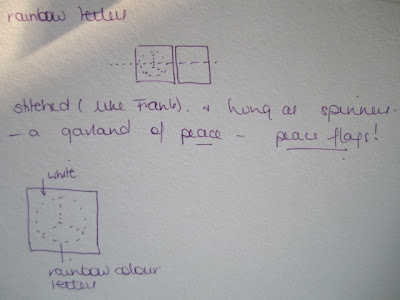 rainbow letters
stitched (like Frank). & hung as spinner.
- a garland of peace - peace flags!
white
rainbow colour
letters